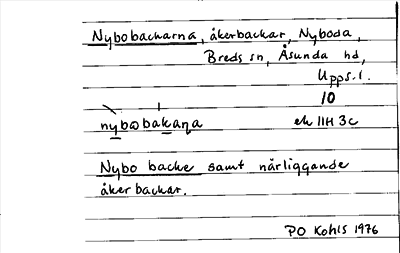 Nybobackarna, åkerbackar, Nyboda,
Breds sn, Åsunda hd,
Upps. l.
10
nybωbakaṇa ek 11H 3c
Nybo backe samt närliggande
åkerbackar.
PO Kohls 1976